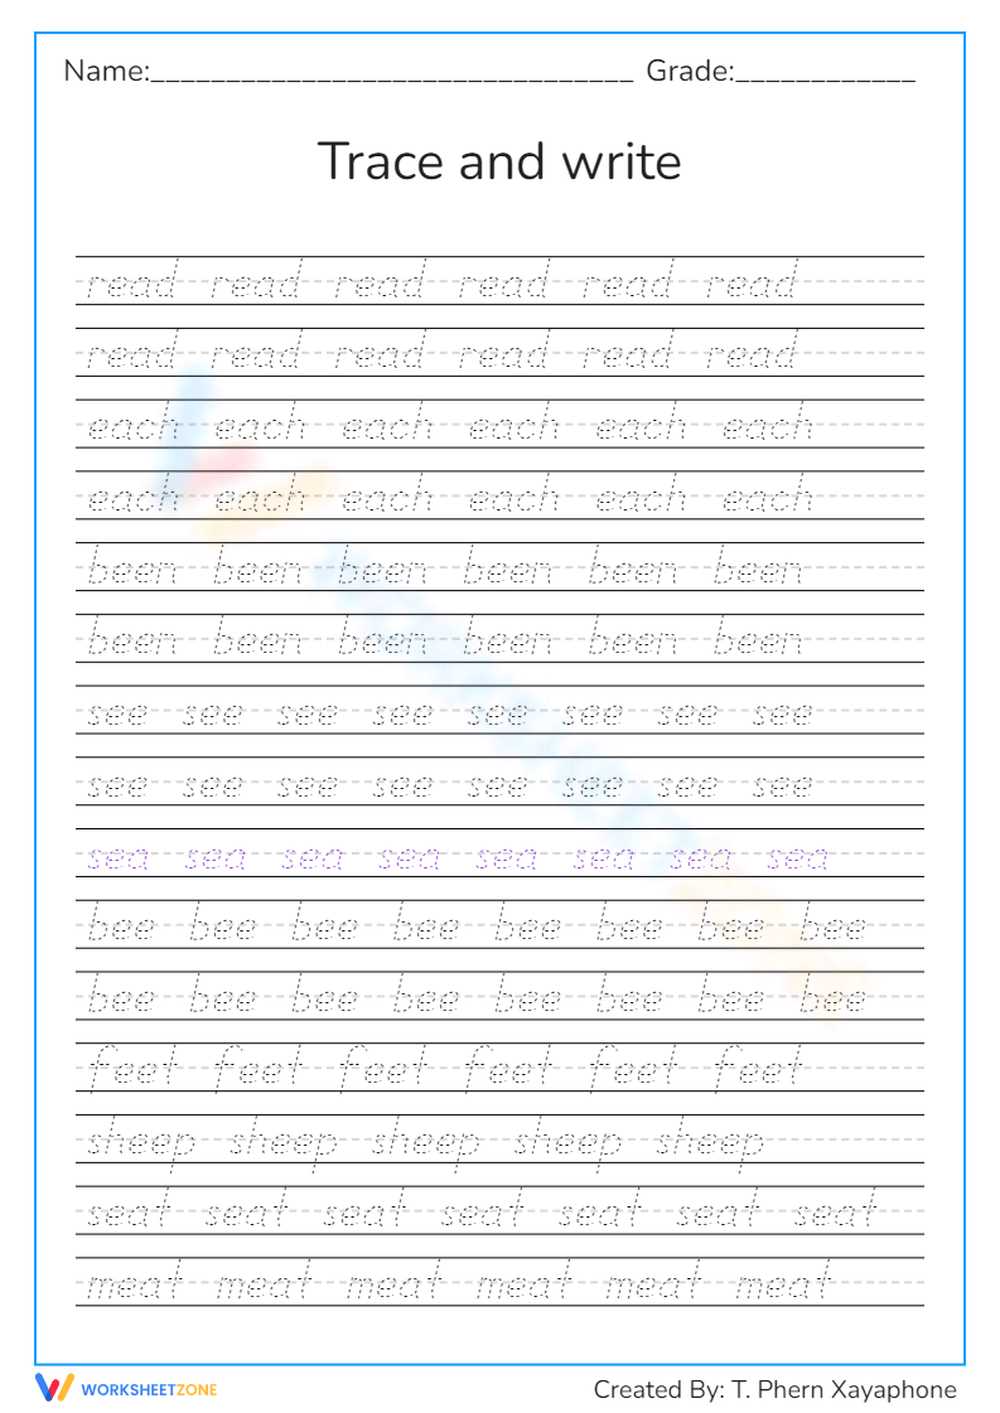 Name:________________________________ Grade:____________
Trace and write
read read read read read read
read read read read read read
each each each each each each
each each each each each each
been been been been been been
been been been been been been
see see see see see see see see
see see see see see see see see
sea sea sea sea sea sea sea sea
bee bee bee bee bee bee bee bee
bee bee bee bee bee bee bee bee
feet feet feet feet feet feet
sheep sheep sheep sheep sheep
seat seat seat seat seat seat seat
meat meat meat meat meat meat
WORKSHEETZONE Created By: T. Phern Xayaphone